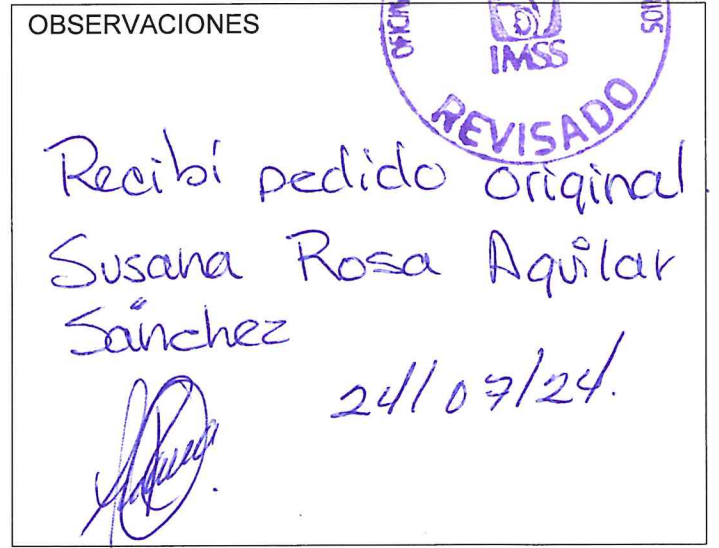 OBSERVACIONES
IMSS
REVISADO
Recibí pedido original.
Susana Rosa Aguilar
Sánchez
24/07/24.